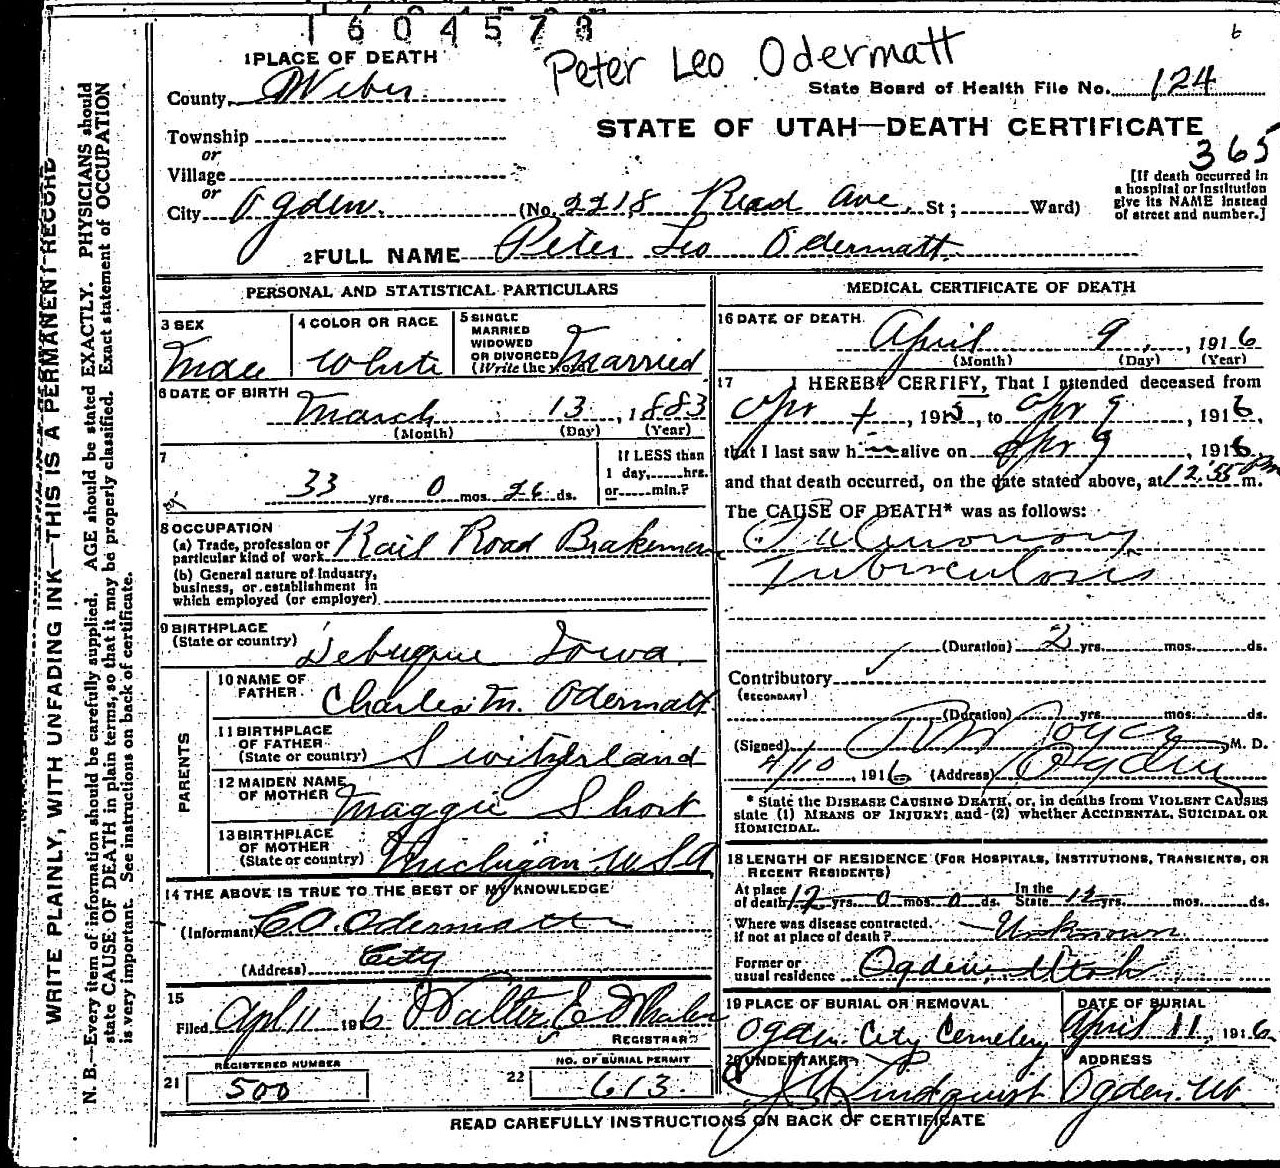 1604578
6
Peter Leo Odermatt
1 PLACE OF DEATH
County Weber
State Board of Health File No. 124
Township
STATE OF UTAH—DEATH CERTIFICATE
365
or
Village
or
City Ogden. (No. 2218 Read Ave, St; Ward)
[If death occurred in a hospital or institution give its NAME instead of street and number.]
2 FULL NAME Peter Leo Odermatt.
PERSONAL AND STATISTICAL PARTICULARS
3 SEX
Male
4 COLOR OR RACE
White
5 SINGLE MARRIED WIDOWED OR DIVORCED (Write the word)
Married
6 DATE OF BIRTH
March 13, 1883
(Month) (Day) (Year)
7
33 yrs. 0 mos. 26 ds.
If LESS than
1 day, hrs.
or min.?
8 OCCUPATION
(a) Trade, profession or particular kind of work Rail Road Brakeman
(b) General nature of Industry,
business, or establishment in
which employed (or employer)
9 BIRTHPLACE
(State or country) Debuque Iowa.
PARENTS
10 NAME OF FATHER Charles M. Odermatt
11 BIRTHPLACE OF FATHER (State or country) Switzerland
12 MAIDEN NAME OF MOTHER Maggie Short
13 BIRTHPLACE OF MOTHER (State or country) Michigan. USA
14 THE ABOVE IS TRUE TO THE BEST OF MY KNOWLEDGE
(Informant) Odermatt
(Address) City
15
Filed Apl 11 1916 Walter E Whalen
REGISTRAR
REGISTERED NUMBER
21 500
NO. OF BURIAL PERMIT
22 613.
MEDICAL CERTIFICATE OF DEATH
16 DATE OF DEATH
April 9, 1916
(Month) (Day) (Year)
17 I HEREBY CERTIFY, That I attended deceased from
Apr , 1915, to Apr 9, 1916
that I last saw him alive on Apr 9, 1916
and that death occurred, on the date stated above, at 12:55 Pm.
The CAUSE OF DEATH* was as follows:
Pulmonary
Tuberculosis
(Duration) 2 yrs. mos. ds.
Contributory
(SECONDARY)
(Duration) yrs. mos. ds.
(Signed) Joyce M. D.
4/10, 1916 (Address) Ogden
* State the DISEASE CAUSING DEATH, or, in deaths from VIOLENT CAUSES
state (1) MEANS OF INJURY; and (2) whether ACCIDENTAL, SUICIDAL OR
HOMICIDAL.
18 LENGTH OF RESIDENCE (FOR HOSPITALS, INSTITUTIONS, TRANSIENTS, OR
RECENT RESIDENTS)
At place of death 12 yrs. 0 mos. 0 ds. In the State 12 yrs. mos. ds.
Where was disease contracted, if not at place of death? Unknown
Former or usual residence Ogden, Utah
19 PLACE OF BURIAL OR REMOVAL
Ogden City Cemetery
DATE OF BURIAL
April 11, 1916
20 UNDERTAKER
Lindquist
ADDRESS
Ogden. Ut
READ CAREFULLY INSTRUCTIONS ON BACK OF CERTIFICATE
WRITE PLAINLY, WITH UNFADING INK—THIS IS A PERMANENT RECORD
N. B.—Every item of information should be carefully supplied. AGE should be stated EXACTLY. PHYSICIANS should
state CAUSE OF DEATH in plain terms, so that it may be properly classified. Exact statement of OCCUPATION
is very important. See instructions on back of certificate.